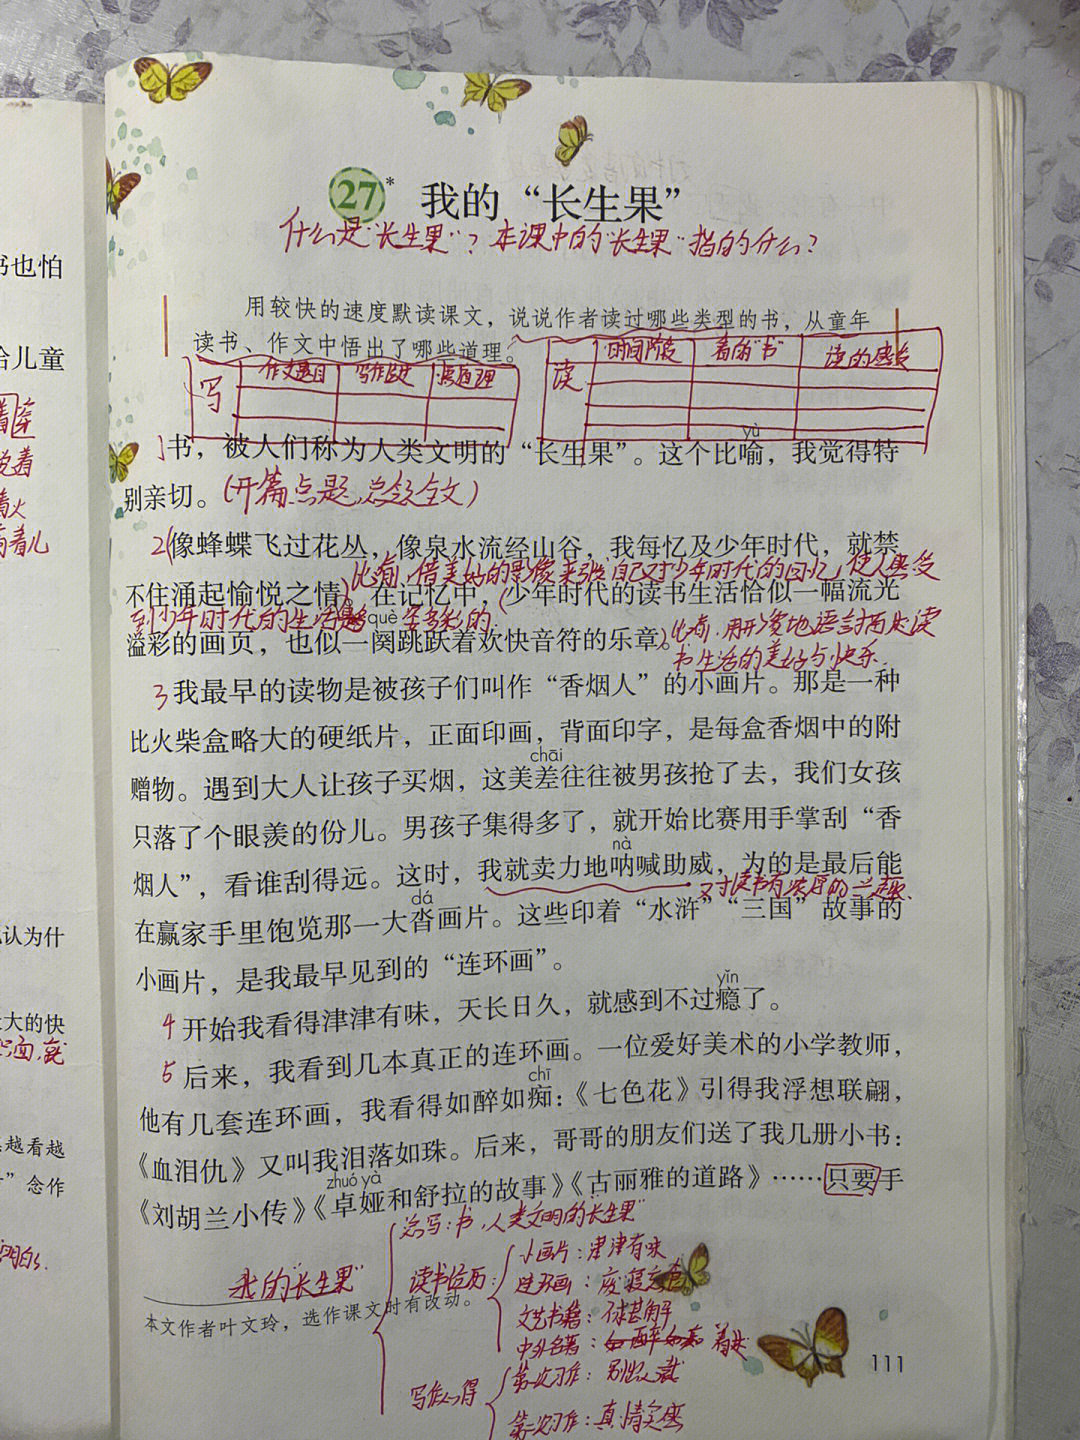 27* 我的“长生果”
什么是“长生果”？本课中的“长生果”指的什么？
用较快的速度默读课文，说说作者读过哪些类型的书，从童年
读书、作文中悟出了哪些道理。
写 作文题目
读 时间阶段 看的“书” 读的感受
yù
1书，被人们称为人类文明的“长生果”。这个比喻，我觉得特
别亲切。(开篇点题，总领全文)
2(像蜂蝶飞过花丛，像泉水流经山谷，我每忆及少年时代，就禁
比喻，借美好的影像来引发自己对少年时代的回忆，使人感受
不住涌起愉悦之情)。在记忆中，(少年时代的读书生活恰似一幅流光
到少年时代的生活是多么多彩的
què
溢彩的画页，也似一阕跳跃着欢快音符的乐章。)
比喻，用形象地语言描述读
书生活的美好与快乐
3我最早的读物是被孩子们叫作“香烟人”的小画片。那是一种
比火柴盒略大的硬纸片，正面印画，背面印字，是每盒香烟中的附
chāi
赠物。遇到大人让孩子买烟，这美差往往被男孩抢了去，我们女孩
只落了个眼羡的份儿。男孩子集得多了，就开始比赛用手掌刮“香
nà
烟人”，看谁刮得远。这时，我就卖力地呐喊助威，为的是最后能
对读书有浓厚的兴趣
dá
在赢家手里饱览那一大沓画片。这些印着“水浒”“三国”故事的
小画片，是我最早见到的“连环画”。
yǐn
4开始我看得津津有味，天长日久，就感到不过瘾了。
5后来，我看到几本真正的连环画。一位爱好美术的小学教师，
chī
他有几套连环画，我看得如醉如痴：《七色花》引得我浮想联翩，
《血泪仇》又叫我泪落如珠。后来，哥哥的朋友们送了我几册小书：
zhuó yà
《刘胡兰小传》《卓娅和舒拉的故事》《古丽雅的道路》……只要手
总写：书，人类文明的“长生果”
我的“长生果”
读书经历：
小画片：津津有味
连环画：废寝忘食
文艺书籍：不求甚解
中外名著：如醉如痴 着迷
写作心得
第一次习作：别出心裁
第二次习作：真情实感
本文作者叶文玲，选作课文时有改动。
111
书也怕
给儿童
着火
认为什
大的快
越看越
”念作